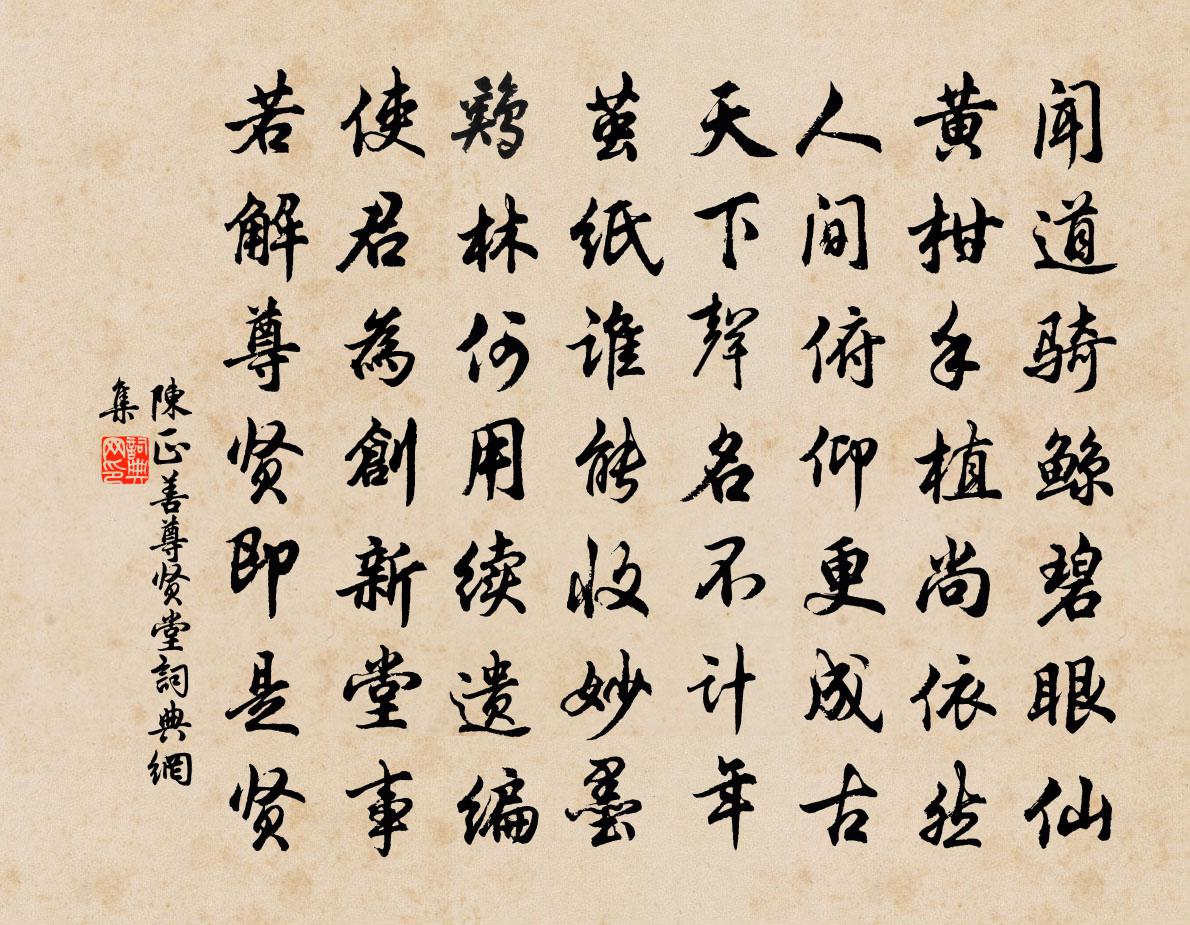 闻道骑鲸碧眼仙
黄柑手植尚依然
人间俯仰更成古
天下声名不计年
茧纸谁能收妙墨
鸡林何用续遗编
使君为创新堂事
若解尊贤即是贤
陳正善尊贤堂詞典網
集
詞典
网印